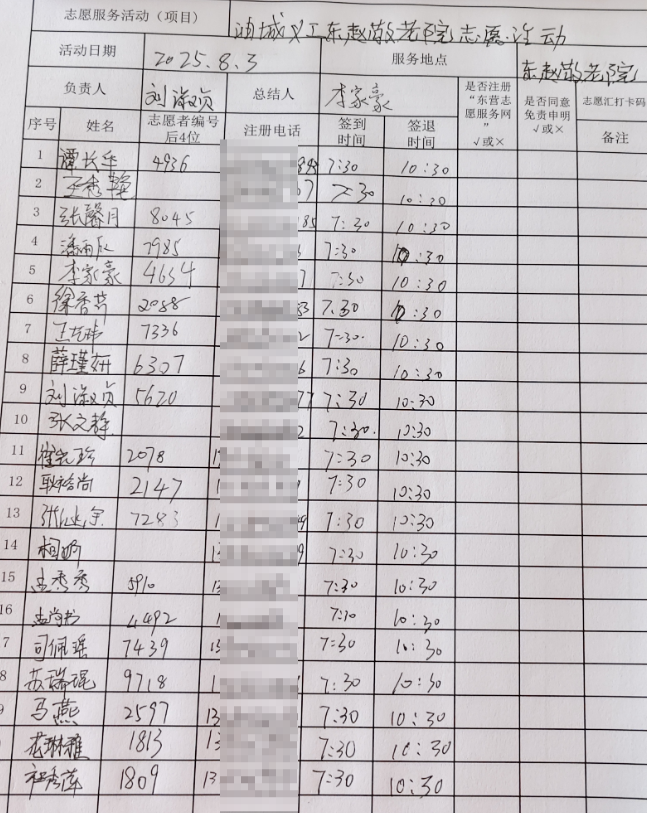 志愿服务活动（项目） 油城义工东赵敬老院志愿活动
活动日期 2025.8.3 服务地点 东赵敬老院
负责人 刘淑贞 总结人 李家豪 是否注册“东营志愿服务网”√或× 是否同意免责申明√或× 志愿汇打卡码
序号 姓名 志愿者编号后4位 注册电话 签到时间 签退时间 备注
1 谭长华 4936 7:30 10:30
2 王秀艳 7:30 10:30
3 张馨月 8045 85 7:30 10:30
4 7985 7:30 10:30
5 李家豪 4654 7:30 10:30
6 徐香芸 2088 7:30 10:30
7 7336 2 7:30 10:30
8 薛瑾妍 6307 6 7:30 10:30
9 刘淑贞 5620 77 7:30 10:30
10 张文静 2 7:30 10:30
11 2078 7:30 10:30
12 2147 7:30 10:30
13 7283 7:30 10:30
14 13 7:30 10:30
15 孟秀秀 5910 13 7:30 10:30
16 孟尚书 4492 7:30 10:30
7 司佩瑶 7439 13 7:30 10:30
8 苏瑞琨 9718 1 7:30 10:30
马燕 2597 13 7:30 10:30
1813 13 7:30 10:30
1809 13 7:30 10:30